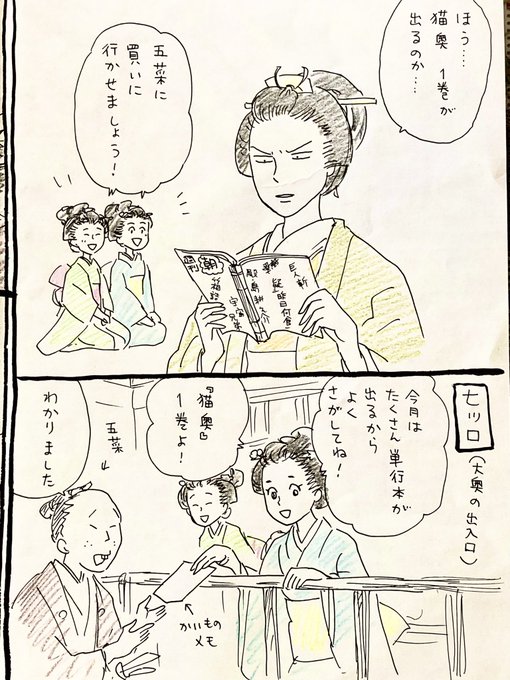 ほう……
猫奥 1巻が
出るのか……
五菜に
買いに
行かせましょう！
週刊
朝
七ツ口
（大奥の出入口）
今月は
たくさん単行本が
出るから
よく
さがしてね！
『猫奥』
1巻よ！
かいもの
メモ
五菜
わかりました